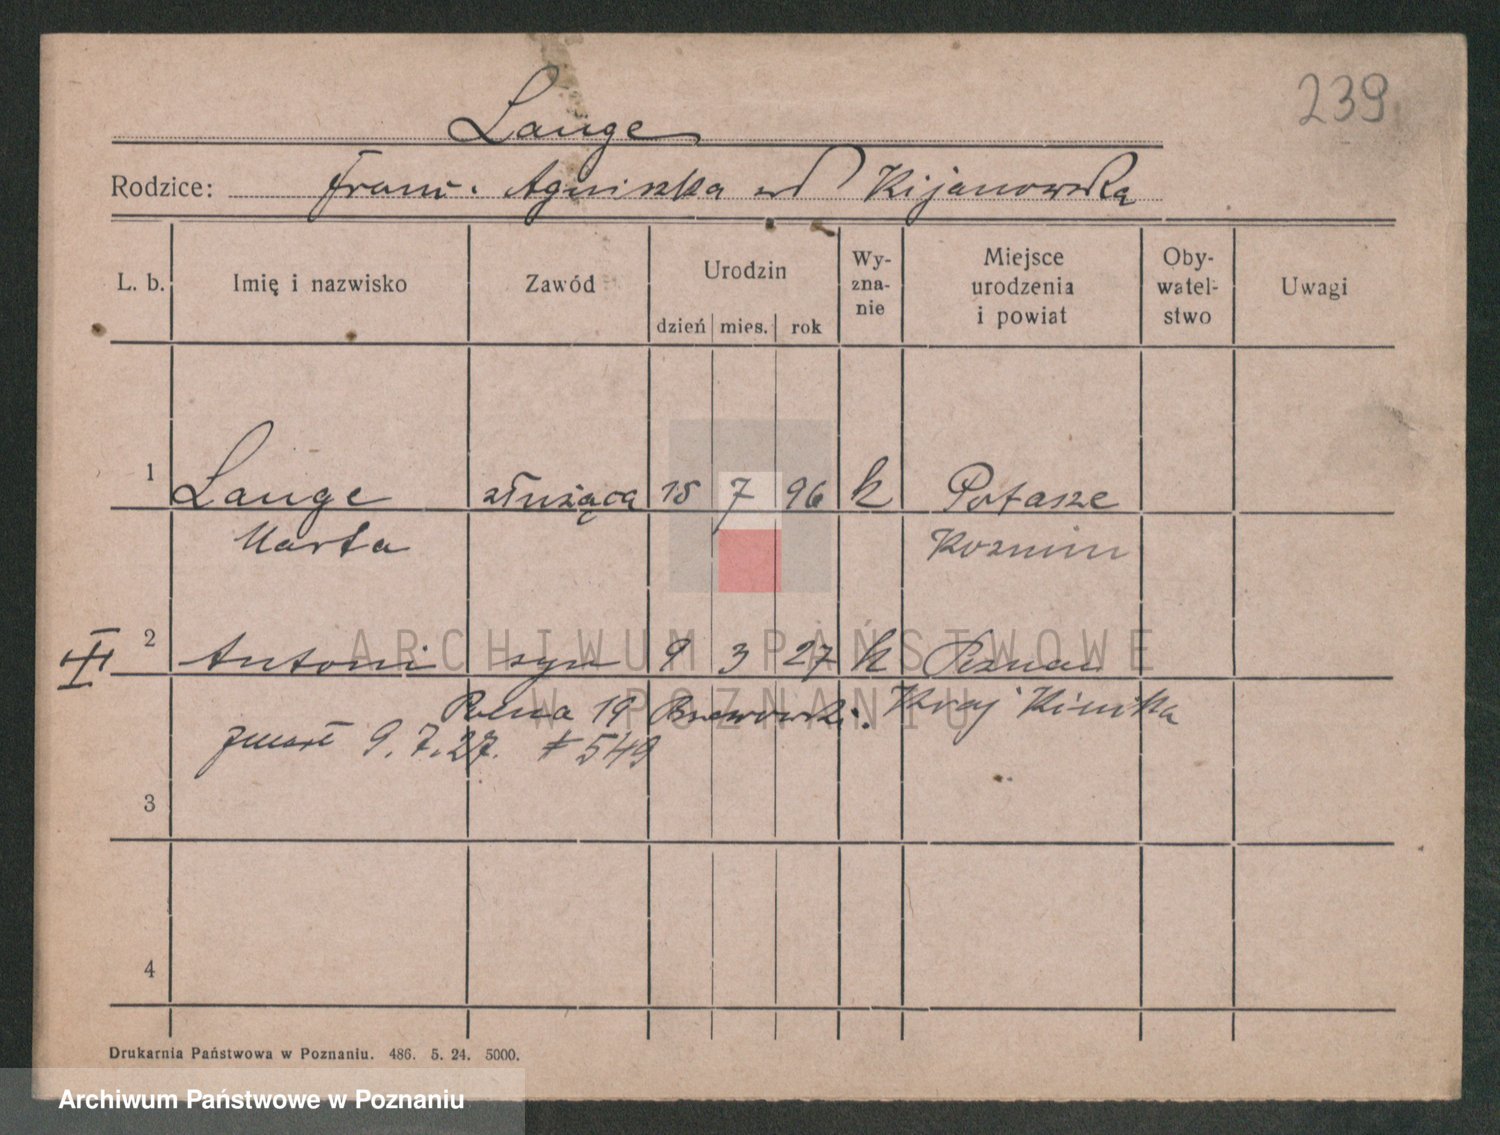 239
Lange
Rodzice: Franc. Agniszka ud Kijanowska
L. b. Imię i nazwisko Zawód Urodzin dzień mies. rok Wy-zna-nie Miejsce urodzenia i powiat Oby-watel-stwo Uwagi
1 Lange służąca 15 7 96 k Potasze
Marta Kozmin
2 Antoni syn 9 3 27 k Poznań
19 Kraj Kinika
zmarł 9.7.27. # 549
3
4
Drukarnia Państwowa w Poznaniu. 486. 5. 24. 5000.
ARCHIWUM PAŃSTWOWE
W POZNANIU
Archiwum Państwowe w Poznaniu